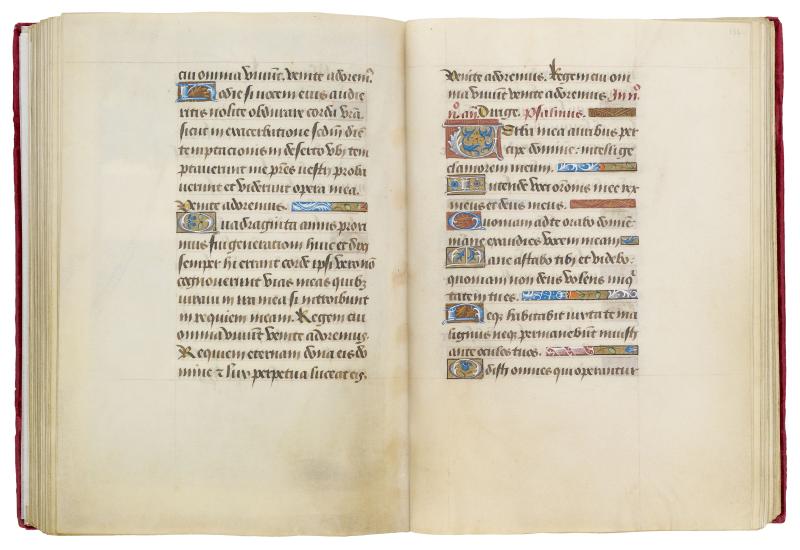 cui omnia vivunt. Venite adorem9.
Hodie si vocem eius audie
ritis nolite obdurare corda vr̄a.
sicut in exacerbatione scdm̄ diē
temptacionis in deserto vbi tem
ptaverunt me pr̄es vestri proba
verunt et viderunt opera mea.
Venite adoremus.
Quadraginta annis proxi
mus fui generationi huic et dixi
semper hi errant corde ipsi vero nō
cognoverunt vias meas quibz
iuravi in ira mea si introibunt
in requiem meam. Regem cui
omnia vivūt venite adoremus.
Requiem eternam dona eis do
mine ⁊ lux perpetua luceat eis.
Venite adoremus. Regem cui om
nia vivūt venite adoremus
añ Dirige. Psalmus.
Verba mea auribus per
cipe domine: intellige
clamorem meum.
Intende voci orōnis mee rex
meus et deus meus.
Quoniam ad te orabo domiē:
māne exaudies vocem meam
Mane astabo tibi et videbo:
quoniam non deus volens iniq̄
tatem tu es.
Neq; habitabit iuxta te ma
lignus neq; permanebunt iniusti
ante oculos tuos.
Odisti omnes qui operantur